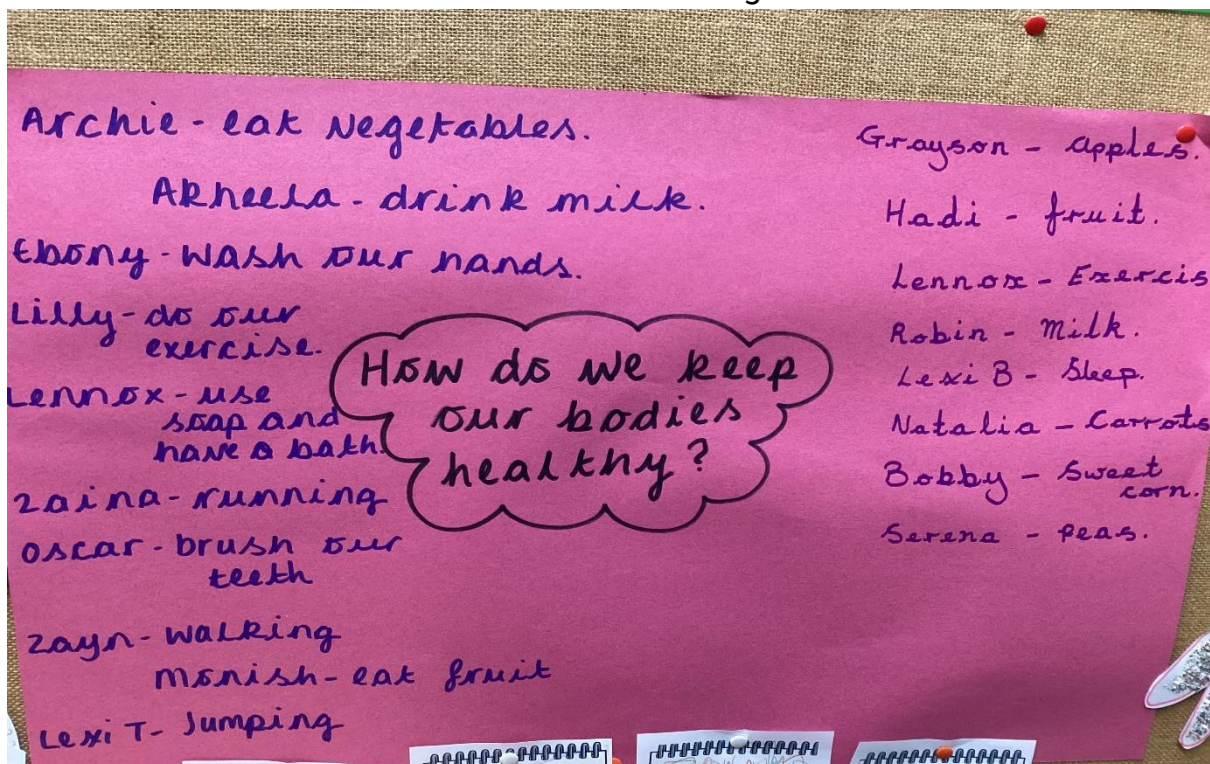 Archie - eat vegetables.
Akheela - drink milk.
Ebony - wash our hands.
Lilly - do our
exercise.
Lennox - use
soap and
have a bath.
Zaina - running
Oscar - brush our
teeth
Zayn - walking
Monish - eat fruit
Lexi T - Jumping
How do we keep
our bodies
healthy?
Grayson - apples.
Hadi - fruit.
Lennox - Exercis
Robin - Milk.
Lexi B - Sleep.
Natalia - Carrots
Bobby - Sweet
corn.
Serena - peas.